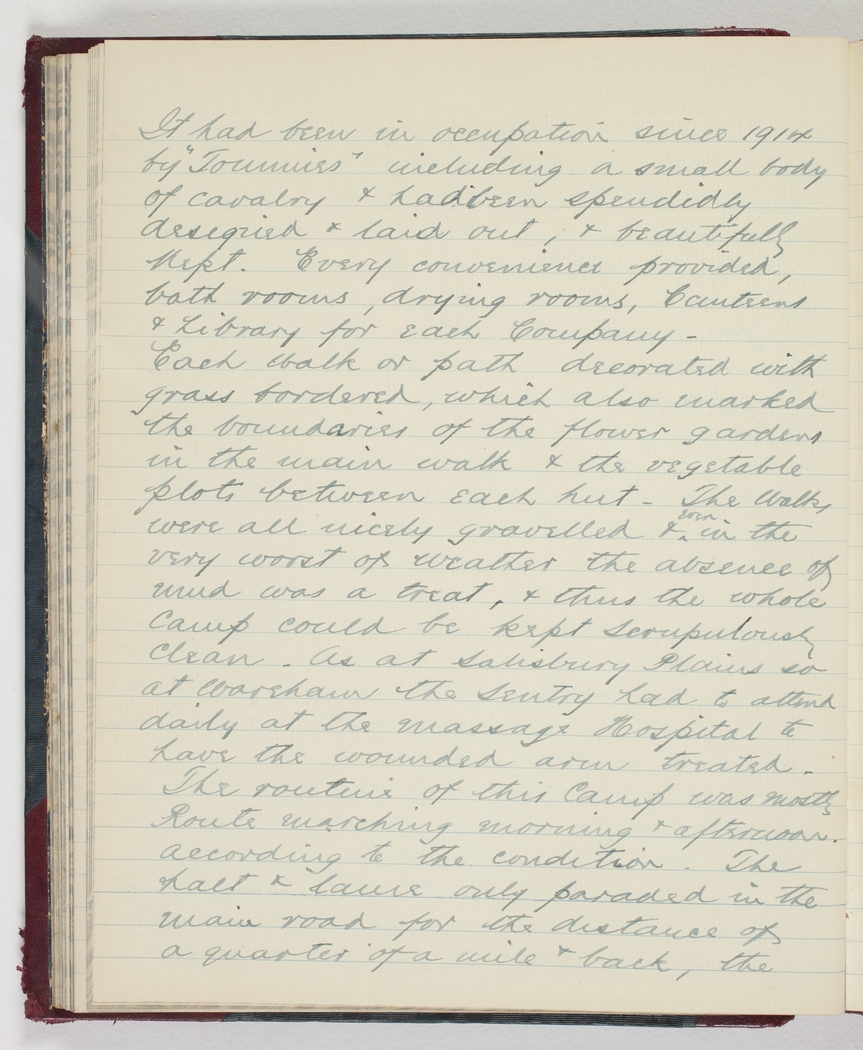 It had been in occupation since 1914
by "Tommies" including a small body
of cavalry & had been spendidly
designed & laid out, & beautifully
kept. Every convenience provided,
bath rooms, drying rooms, Canteens
& Library for each Company -
Each walk or path decorated with
grass bordered, which also marked
the boundaries of the flower gardens
in the main walk & the vegetable
plots between each hut - The Walks
were all nicely gravelled & even in the
very worst of weather the absence of
mud was a treat, & thus the whole
Camp could be kept scrupulously
clean. As at Salisbury Plains so
at Wareham the Sentry had to attend
daily at the massage Hospital to
have the wounded arm treated.
The routine of this Camp was mostly
Route marching morning & afternoon.
according to the condition. The
halt & lame only paraded in the
main road for the distance of
a quarter of a mile & back, the